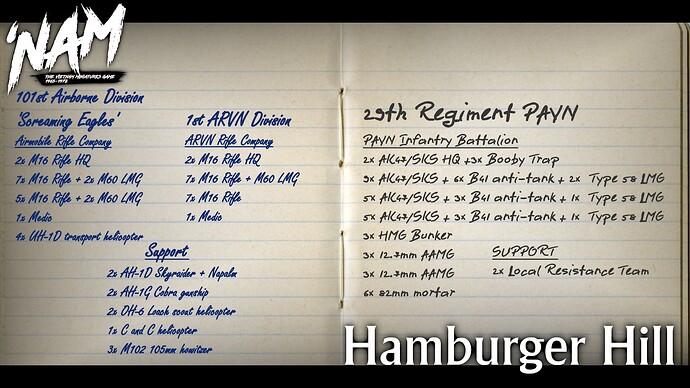 'NAM
THE VIETNAM MINIATURES GAME
1965-1972
101st Airborne Division
'Screaming Eagles'
Airmobile Rifle Company
2x M16 Rifle HQ
7x M16 Rifle + 2x M60 LMG
5x M16 Rifle + 2x M60 LMG
1x Medic
4x UH-1D transport helicopter
1st ARVN Division
ARVN Rifle Company
2x M16 Rifle HQ
7x M16 Rifle + M60 LMG
7x M16 Rifle
1x Medic
Support
2x AH-1D Skyraider + Napalm
2x AH-1G Cobra gunship
2x OH-6 Loach scout helicopter
1x C and C helicopter
3x M102 105mm howitzer
29th Regiment PAVN
PAVN Infantry Battalion
2x AK47/SKS HQ +3x Booby Trap
9x AK47/SKS + 6x B41 anti-tank + 2x Type 58 LMG
5x AK47/SKS + 3x B41 anti-tank + 1x Type 58 LMG
5x AK47/SKS + 3x B41 anti-tank + 1x Type 58 LMG
3x HMG Bunker
3x 12.7mm AAMG
3x 12.7mm AAMG
6x 82mm mortar
SUPPORT
2x Local Resistance Team
Hamburger Hill